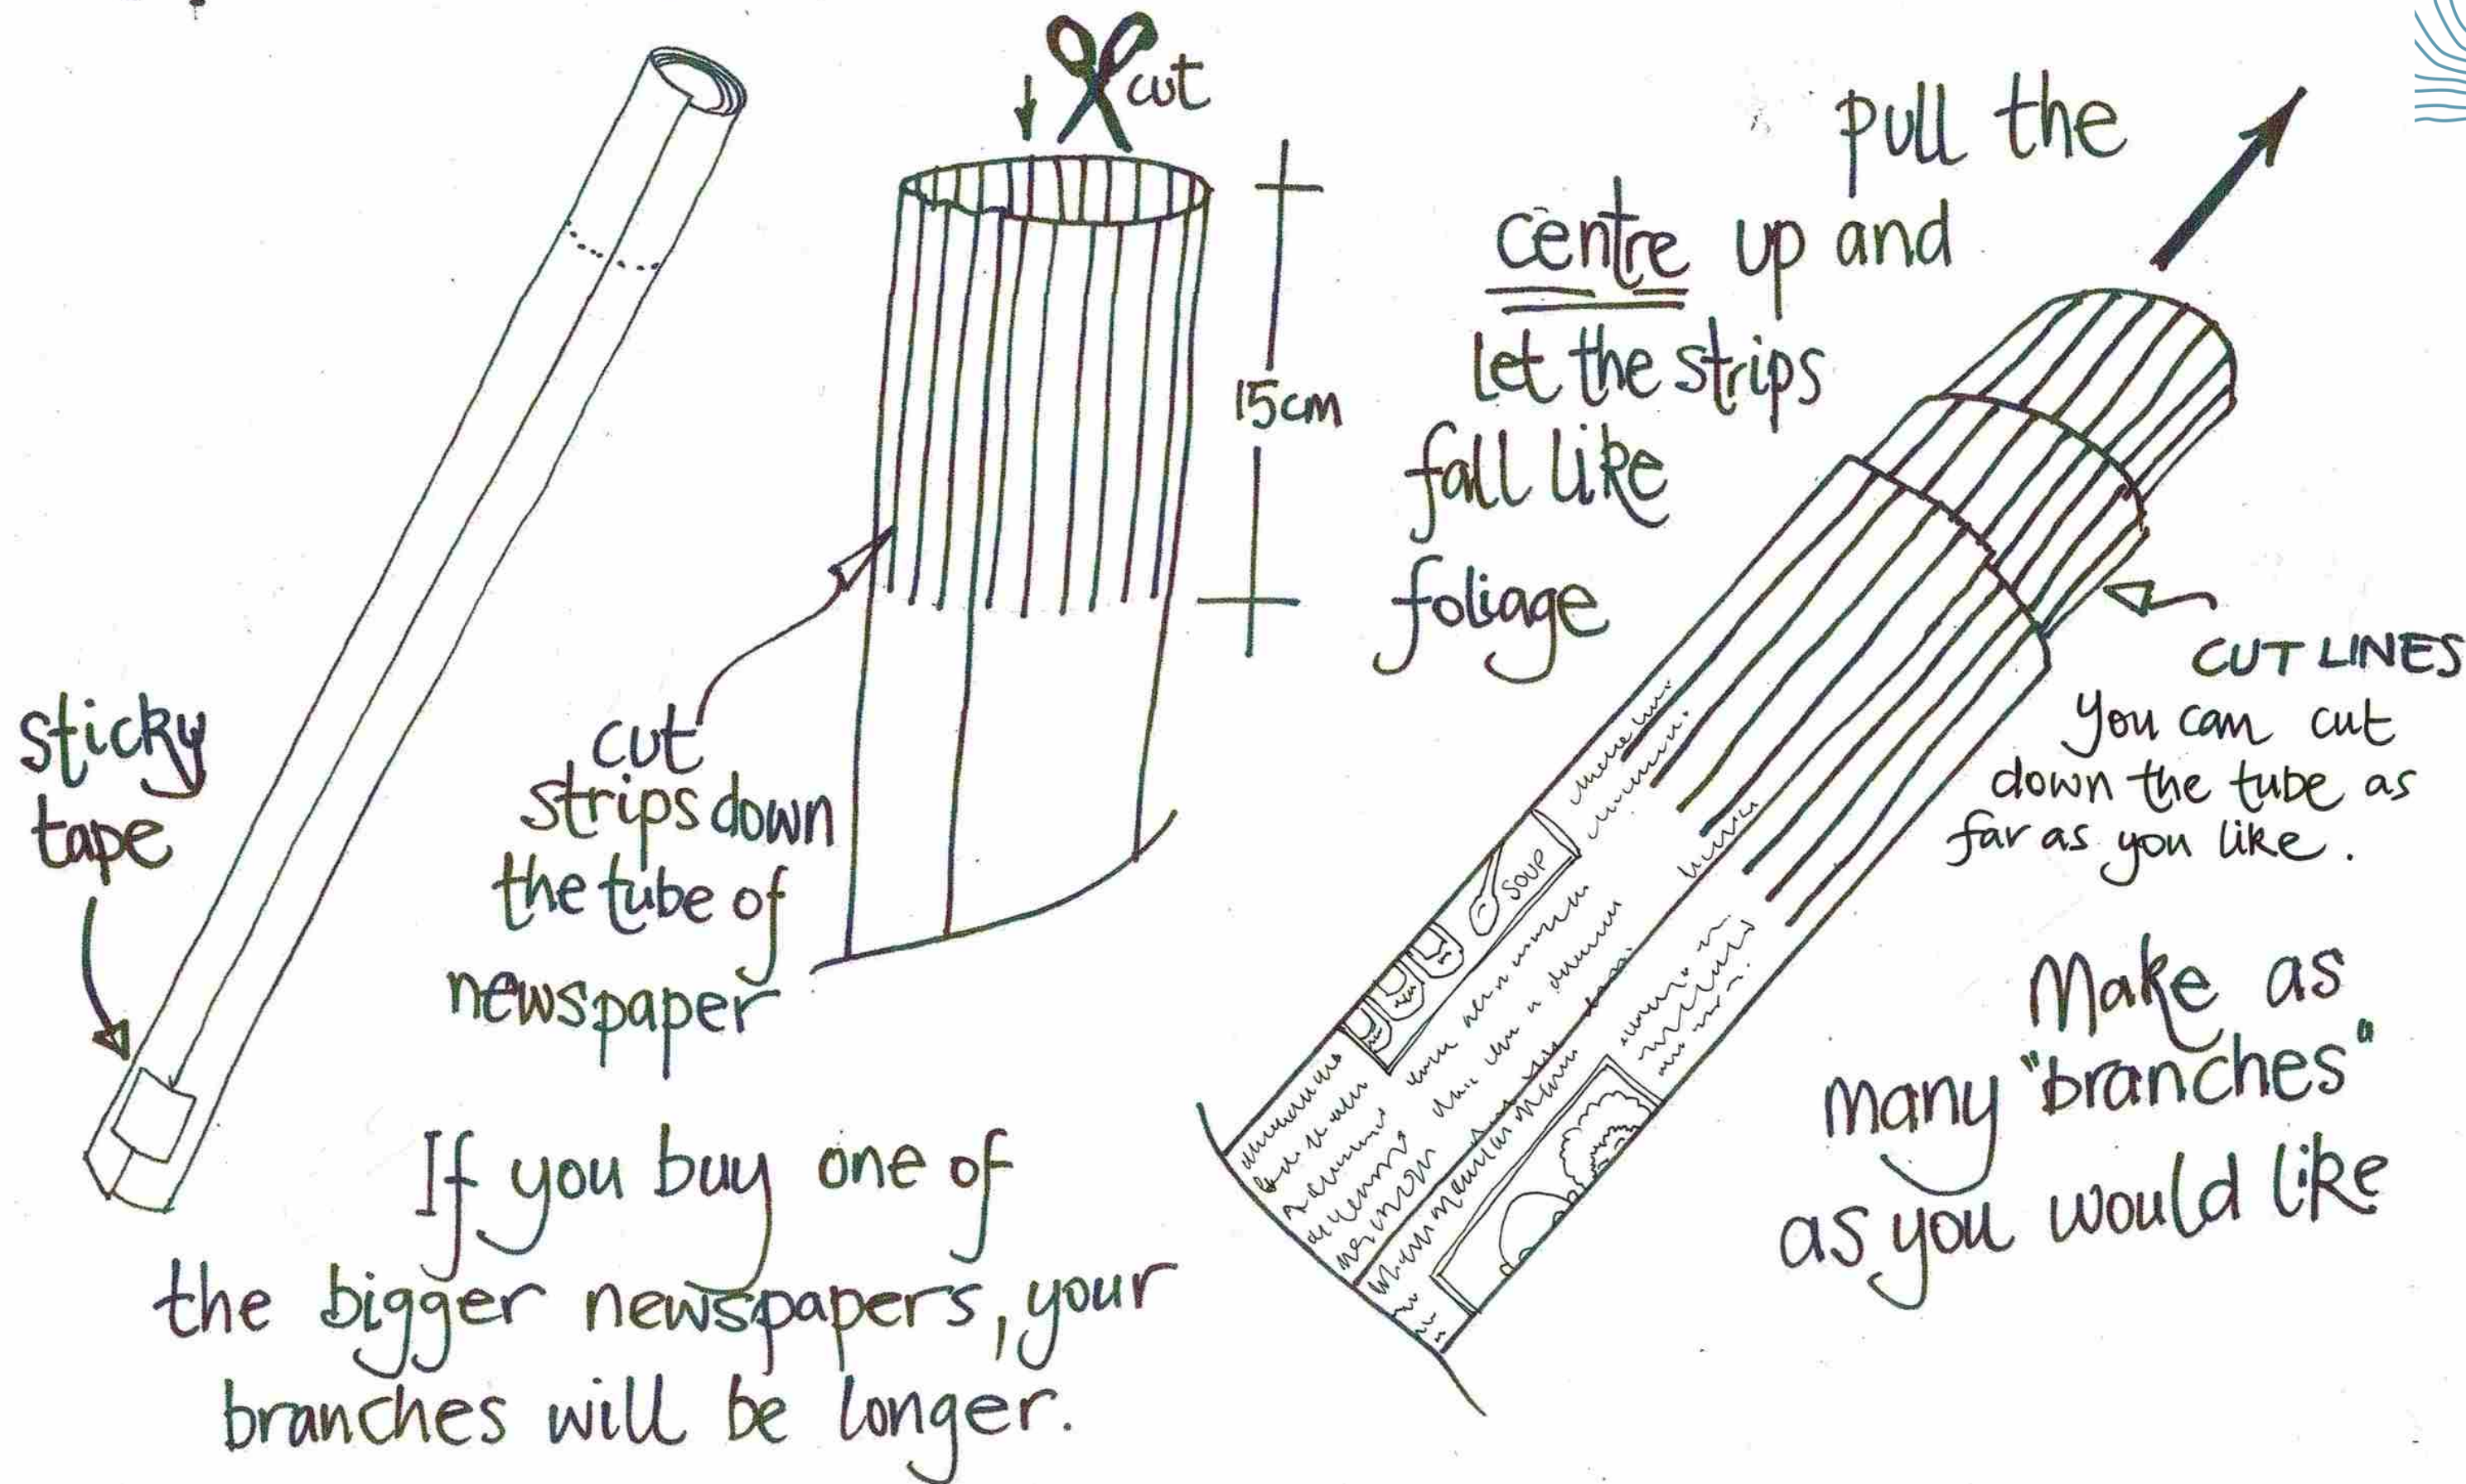 sticky
tape
cut
cut
strips down
the tube of
newspaper
15cm
If you buy one of
the bigger newspapers, your
branches will be longer.
pull the
centre up and
let the strips
fall like
foliage
CUT LINES
You can cut
down the tube as
far as you like.
SOUP
Make as
many "branches"
as you would like